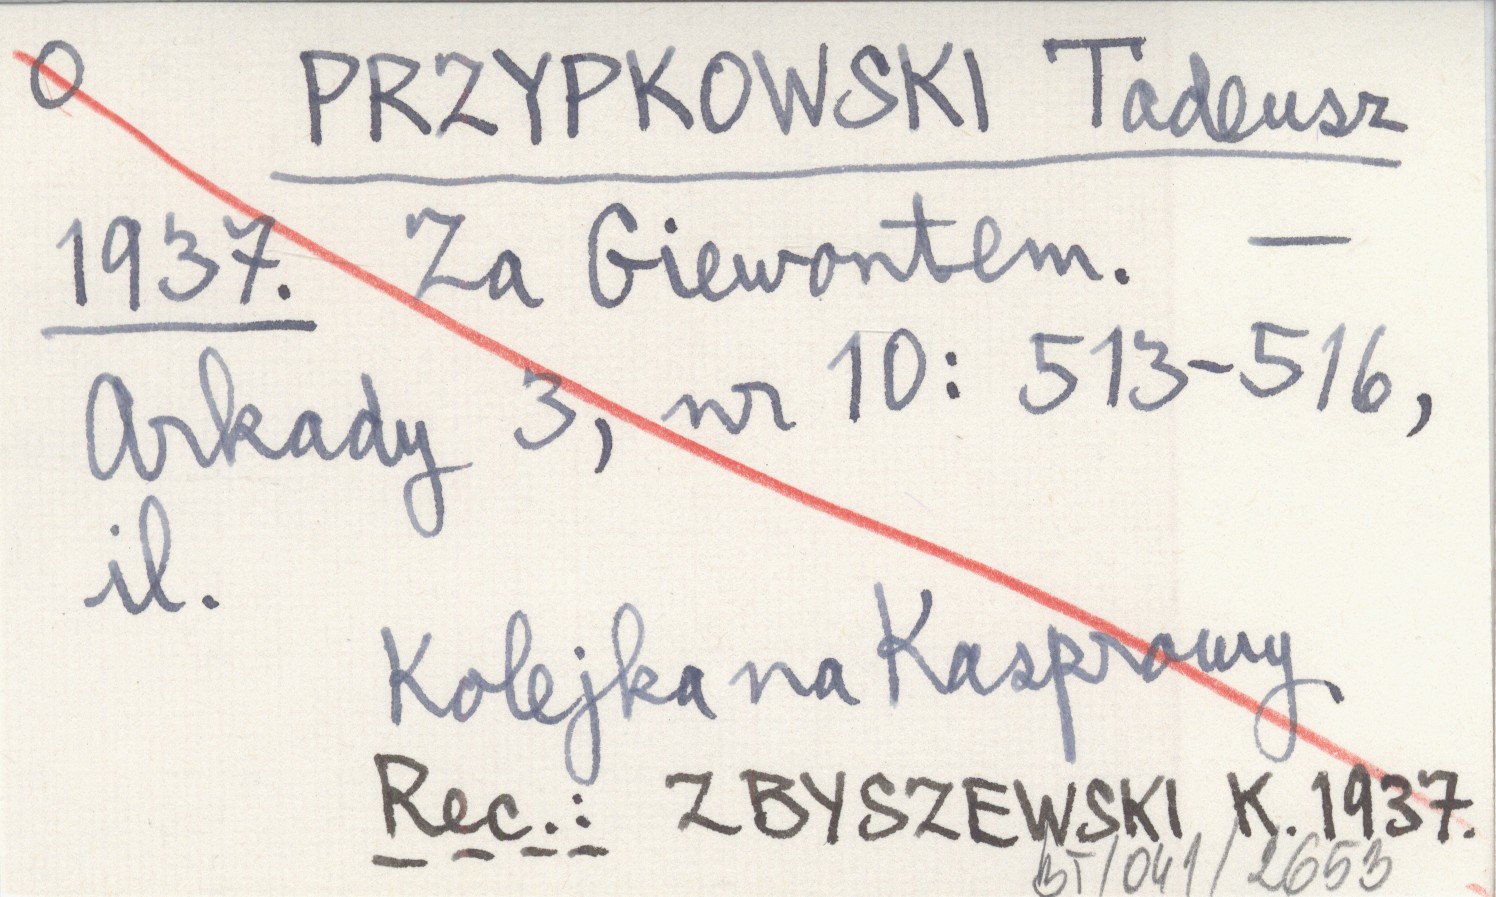 O PRZYPKOWSKI Tadeusz
1937. Za Giewontem. —
Arkady 3, nr 10: 513-516,
il.
Kolejka na Kasprowy
Rec.: ZBYSZEWSKI K. 1937.
BT/041/2653